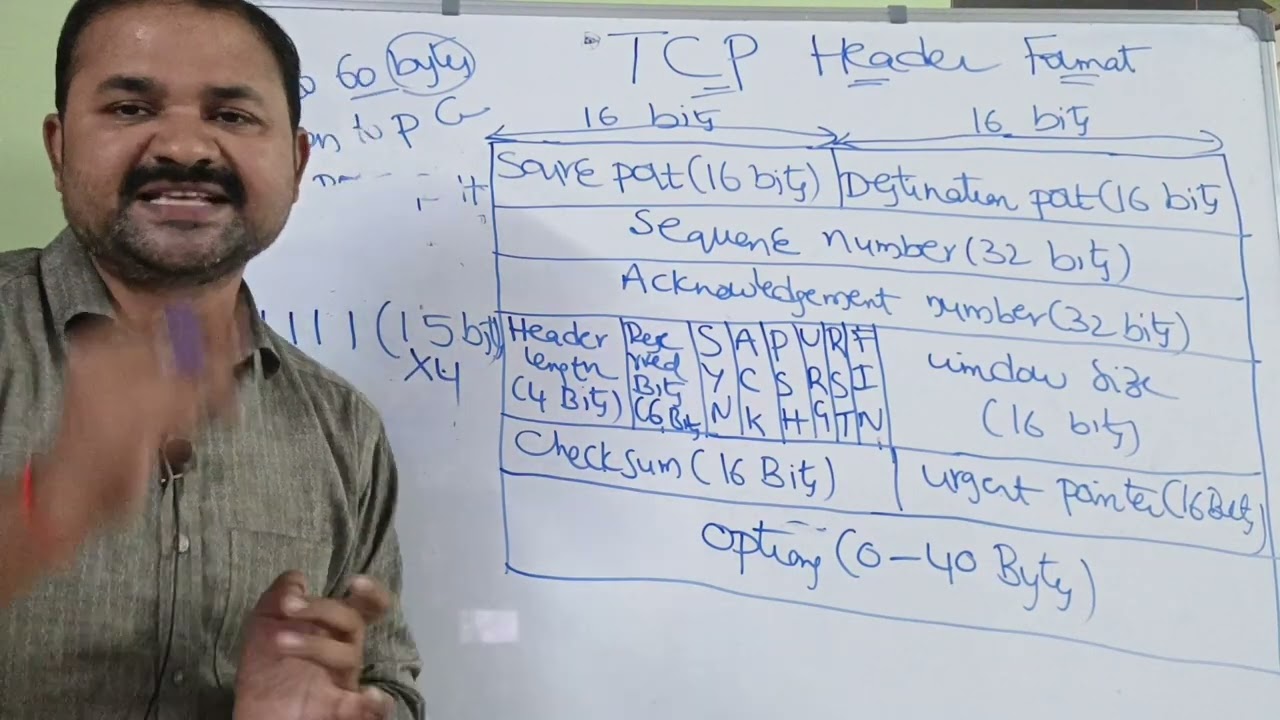 60 bytes
TCP Header Format
to P C
16 bits 16 bits
Source port(16 bits) Destination port(16 bits
Sequence number(32 bits)
Acknowledgement number(32 bits)
1111 (15 bits
X4
Header length (4 Bits)
Reserved Bits (6 Bits
SYN
ACK
PSH
URG
RST
FIN
window size (16 bits)
Checksum(16 Bits) urgent pointer(16 Bits)
Options (0-40 Bytes)